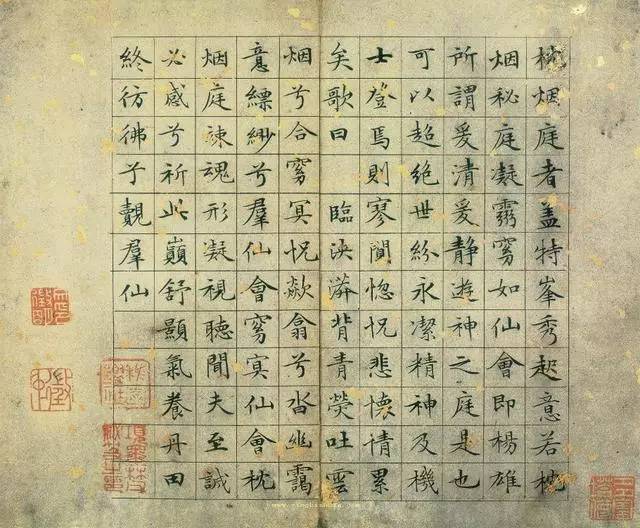 枕烟庭者盖特峯秀起意若枕
烟秘庭凝靄窅如仙會即楊雄
所謂爰清爰静遊神之庭是也
可以超絕世紛永潔精神及機
士登焉則寥闃惚怳悲懷情累
矣歌曰 臨泱漭背青熒吐雲
烟兮合窅冥怳欻翕兮沓幽靄
意縹緲兮羣仙會窅冥仙會枕
烟庭竦魂形凝視聽聞夫至誠
必感兮祈此巔舒顥氣養丹田
終彷彿子覿羣仙